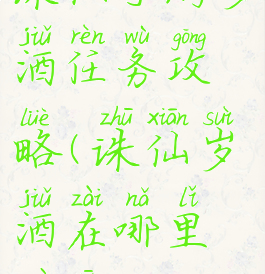 jiǔ rèn wù gōng
酒任务攻
lüè zhū xiān suì
略(诛仙岁
jiǔ zài nǎ lǐ
酒在哪里